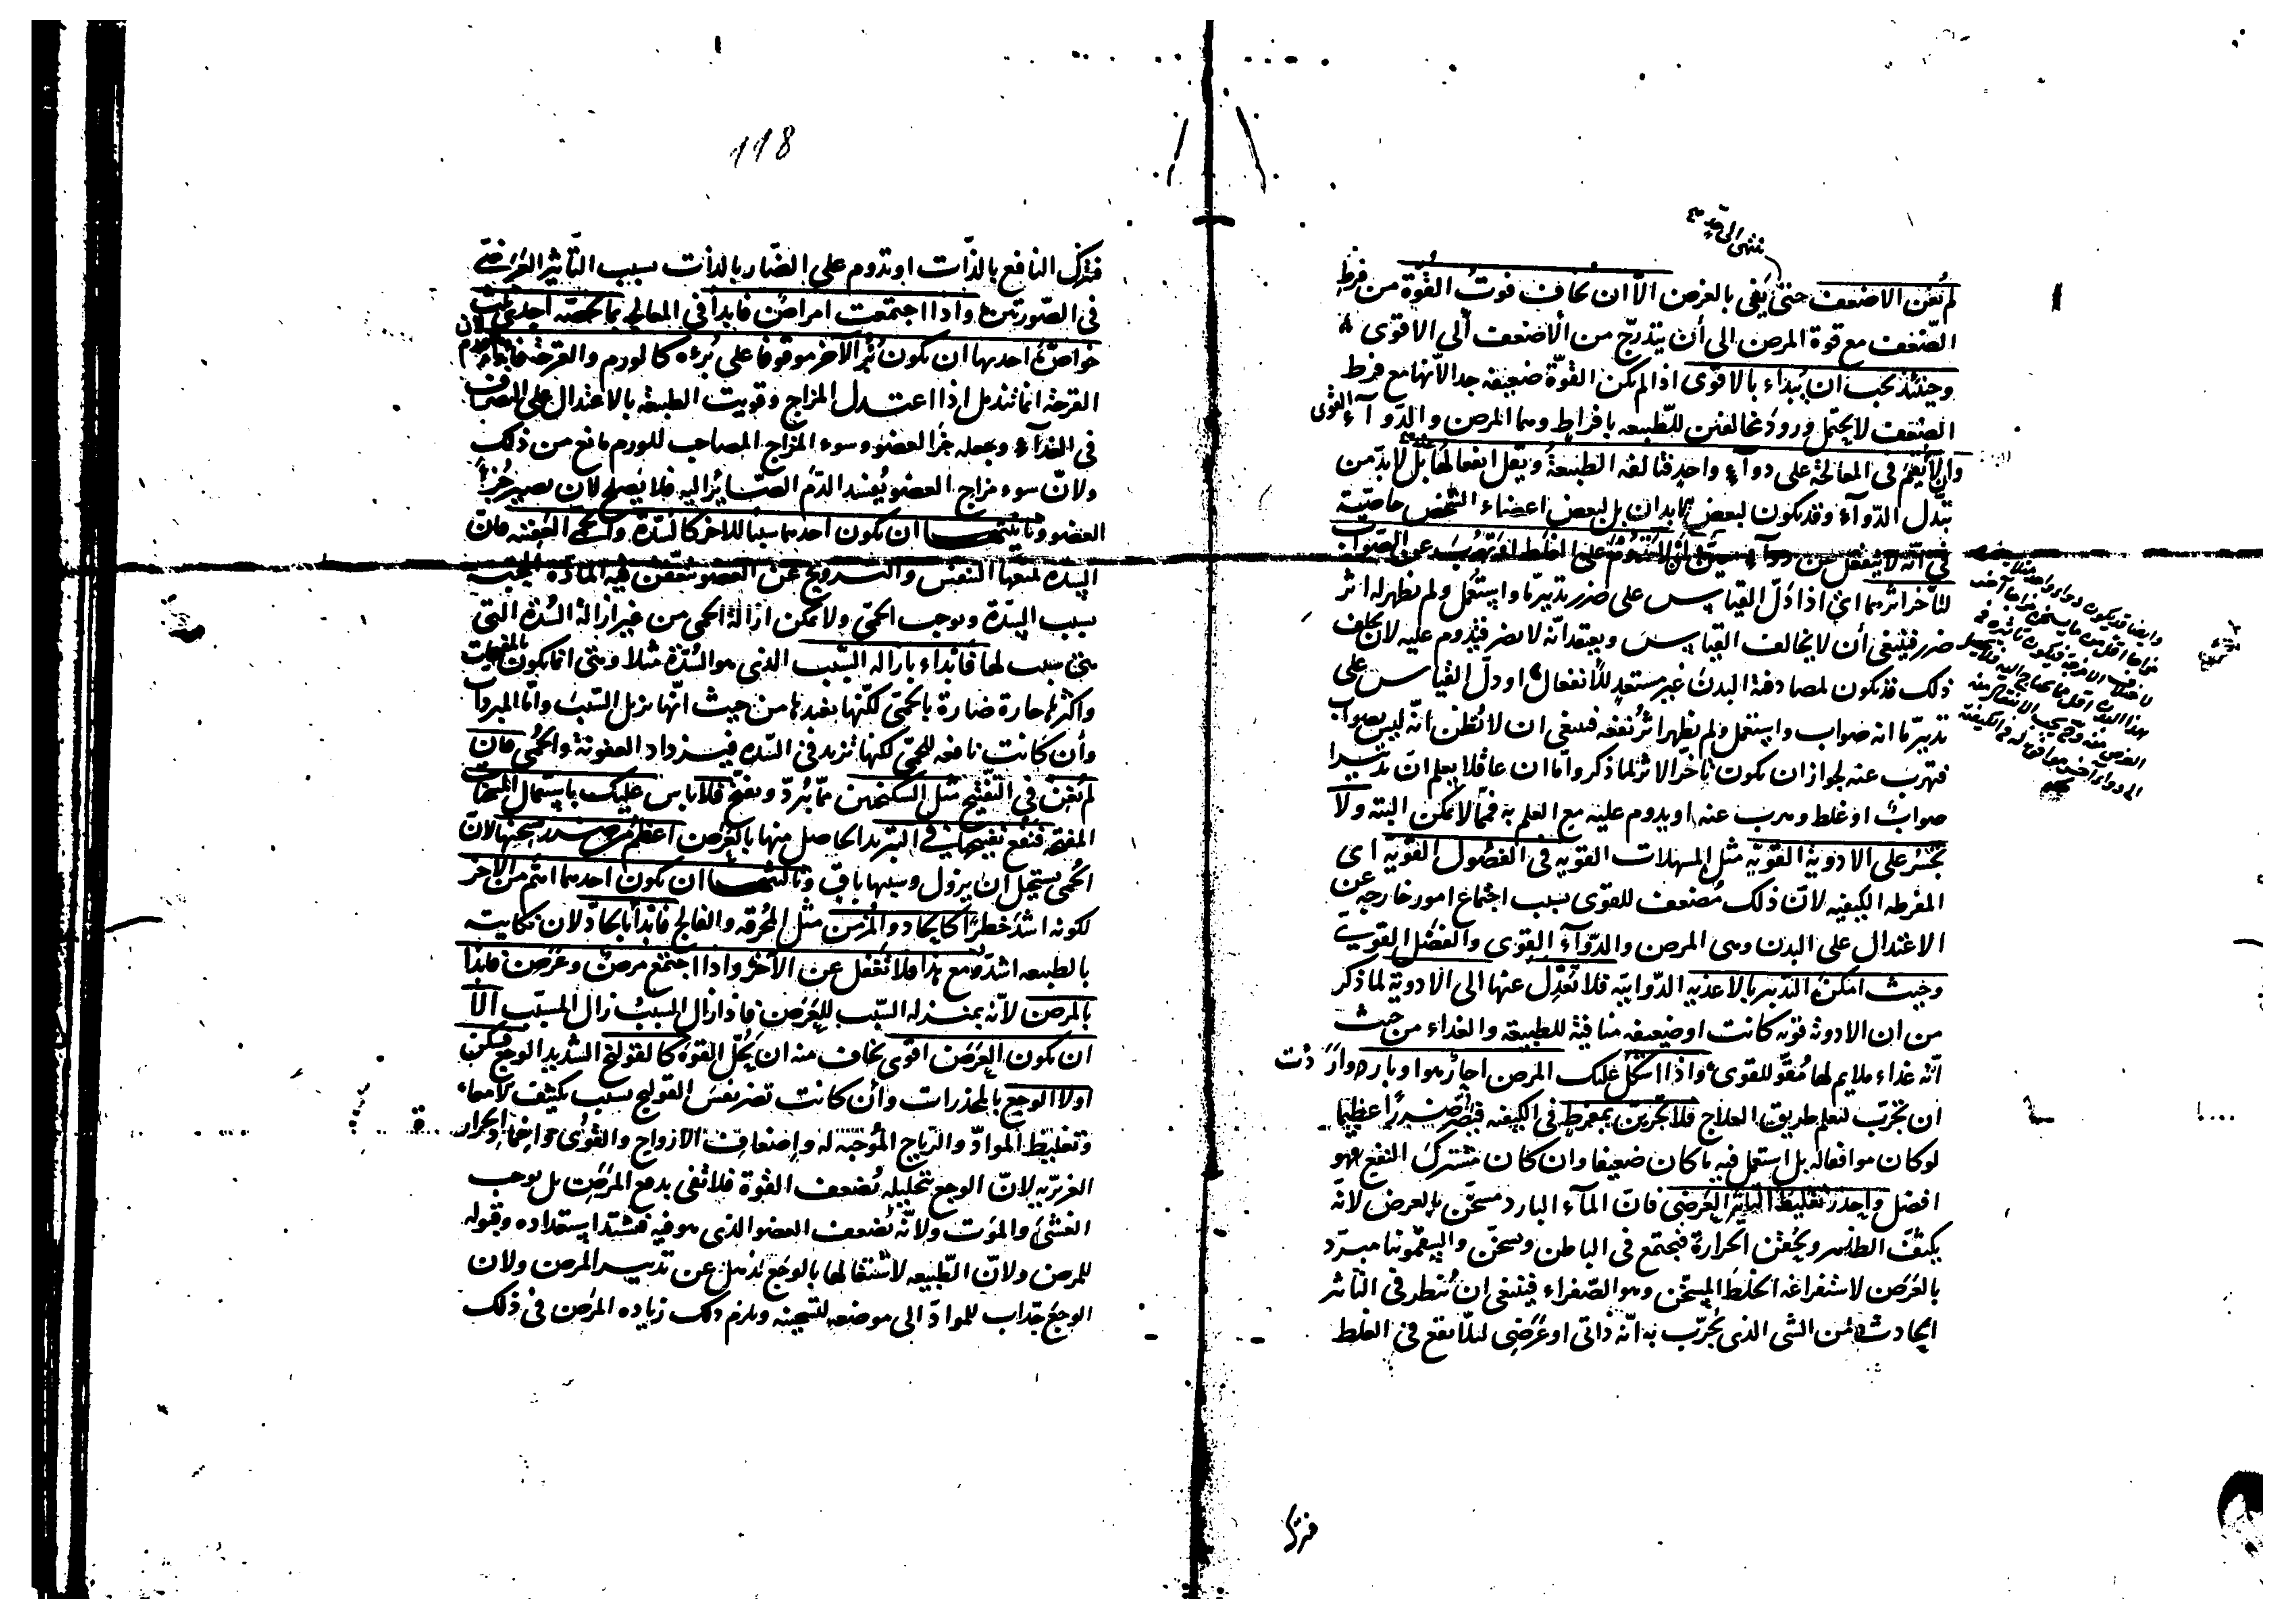 ننتهى الى حد
لم يُغن الاضعف حتى يَفى بالغرض الّا ان يُخاف فوتُ القوّة من فرط
الضّعف مع قوة المرض الى أن يتدرّج من الاضعف ألى الاقوى
وحينئذ يجب ان يُبداء بالاقوى اذا لم يكن القوّة ضعيفه جدا لأنها مع فرط
الضعف لا يحتمل ورود مخالفين للطّبيعه بافراط وهما المرض والدّوآء القوى
وان لا يُقم فى المعالجة على دوآءٍ واحدٍ فتألفه الطبيعةُ ويقل انفعالها بل لا بدّ من
تبدّل الدّوآء وقد يكون لبعض الابدان بل لبعض اعضاء الشخص خاصّية
فى انّه لا ينفعل عن دوآءٍ وان لا تدوم على الغلط او تهرُب عن الصّواب
لتأخّر اثرهما اى اذا دَلّ القياس على ضرر تدبيرٍ ما واستعمل ولم يظهر له اثر
ضرر فينبغى أن لا يخالف القياس ويعتقد انّه لا يضر فيدوم عليه لان تخلف
ذلك قد يكون لمصادفة البدن غير مستعدٍ للأنفعال او دلّ القياس على
تدبيرٍ ما انه صواب واستعمل ولم يظهر اثرُ نفعه فينبغى ان لا تظن انّه ليس بصواب
فتهرب عنه لجواز ان يكون تأخر الاثر لما ذكر وأمّا ان عاقلا يعلم ان تدبيرا
صوابٌ او غلط ويهرب عنه او يدوم عليه مع العلم به فممّا لا يمكن البته ولا
تجسُر على الادوية القويّة مثل المسهلات القويه فى الفصُول القويّه اى
المفرطه الكيفيه لانّ ذلك مُضعف للقوى بسبب اجتماع امور خارجه عن
الاعتدال على البدن وهى المرض والدّوآء القوى والفصل القوىّ
وحيث امكن التدبير بالاغذيه الدّوايّه فلا تَعدِل عنها الى الادوية لما ذكر
من ان الادويه قويه كانت او ضعيفه منافية للطبيعه والغداء من حيث
انّه غداء ملايم لها مُقوّ للقوى واذا اشكل عليك المرض احارّ هو او بارد واردت
ان تجرّب لتعلم طريق العلاج فلا تجرّبن بمفرط فى الكيفيه فيضر ضررًا عظيما
لو كان موافقاله بل استعمل فيه ما كان ضعيفا وان كان مشترك النفع فهو
افضل واحذر تغليط التاثير العَرضى فانّ المآء البارد مسخّن بالعرض لانّه
يكثّف الظاهر ويحقن الحرارة فيجتمع فى الباطن ويسخّن والسقمونيا مبرّد
بالعَرَض لاستفراغه الخلط المسخّن وهو الصّفراء فينبغى ان تنظر فى التأثير
الحادث عن الشى الذى تُجرّب به انّه ذاتى او عَرَضى لئلّا يقع فى الغلط
فترك
118
فتترك النافع بالذّات او تدوم على الضّار بالذات بسبب التأثير العَرَضىّ
فى الصّورتين واذا اجتمعت امراضٌ فابدأ فى المعالجه بما يخصّه احدى ثلث
خواصّ احديها ان يكون بُرء الاخر موقوفا على بُرءه كالورم والقرحة فابدأ بالورم لان
القرحة انما تندمل اذا اعتدل المزاج وقويت الطبيعة بالاعتدال على التصرف
فى الغدآء وجعله جزء العضو وسوء المزاج المصاحب للورم مانع من ذلك
ولانّ سوء مزاج العضو يُفسد الدّمَ الصّائر اليه فلا يَصلح لان يصير جُزء
العضو وثانيتُها ان يكون احدهما سببا للاخر كالسّدّة والحمّى العَفِنه فانّ
السّدّه لمنعها التنفّس والترويح عن العضو تتعفّن فيه المادّه المحتبسه
بسبب السّدّة وتوجب الحمّى ولا يمكن ازالة الحمى من غير ازالة السُدّة التى
هى سبب لها فابداء بازاله السّبب الذى هو السُدّة مثلا وهى انما يكون بالمفتّحات
واكثرها حارة ضارة بالحمّى لكنّها تفيدها من حيث انّها تزيل السّبب وأمّا المبردات
وأن كانت نافعه للحمّى لكنها تزيد فى السّده فيزداد العفونة والحُمى فان
لم يُغن فى التفتيح مثل السكنجبين ممّا يُبرّد ويفتّح فلا باس عليك باستعمال المسخّنات
المفتحه فنفع تفتيحها فى التبريد الحاصل منها بالعَرَض اعظم من ضرر تسخينها لانّ
الحُمى يستحيل ان يزول وسببها باقٍ وثالثتُها ان يكون احدهما اهتم من الاخر
لكونه اشدّ خطرًا كالحاد والمُزمن مثل المُحرقه والفالج فابدأ بالحادّ لان نكايته
بالطبيعه اشدّ ومع هذا فلا تغفل عن الآخر واذا اجتمع مرض وعَرَض فابدأ
بالمرض لانّه بمنزله السّبب للعَرَض فاذا زال السببُ زال المسبّب الّا
ان يكون العَرَض اقوى يخاف منه ان يُحلّ القوة كالقولنج الشديد الوجع فسكّن
اولا الوجع بالمخدرات وأن كانت تضر نفسَ القولنج بسبب تكثيف الامعاء
وتغليظ الموادّ والرّياح المُوجبة له واضعاف الارواح والقُوى والحرار
الغزيزيّه لانّ الوجع بتحليله يُضعف القوة فلا تفى بدفع المَرَض بل يوجب
الغشى والمَوت ولانّه يُضعف العضو الذى هو فيه فيشتدّ استعداده وقبوله
للمرض ولانّ الطّبيعه لاشتغالها بالوجَع تذهل عن تدبير المرض ولان
الوجَع جذّاب للموادّ الى موضعه لتسخينه ويلزم ذلك زياده المرَض فى ذلك